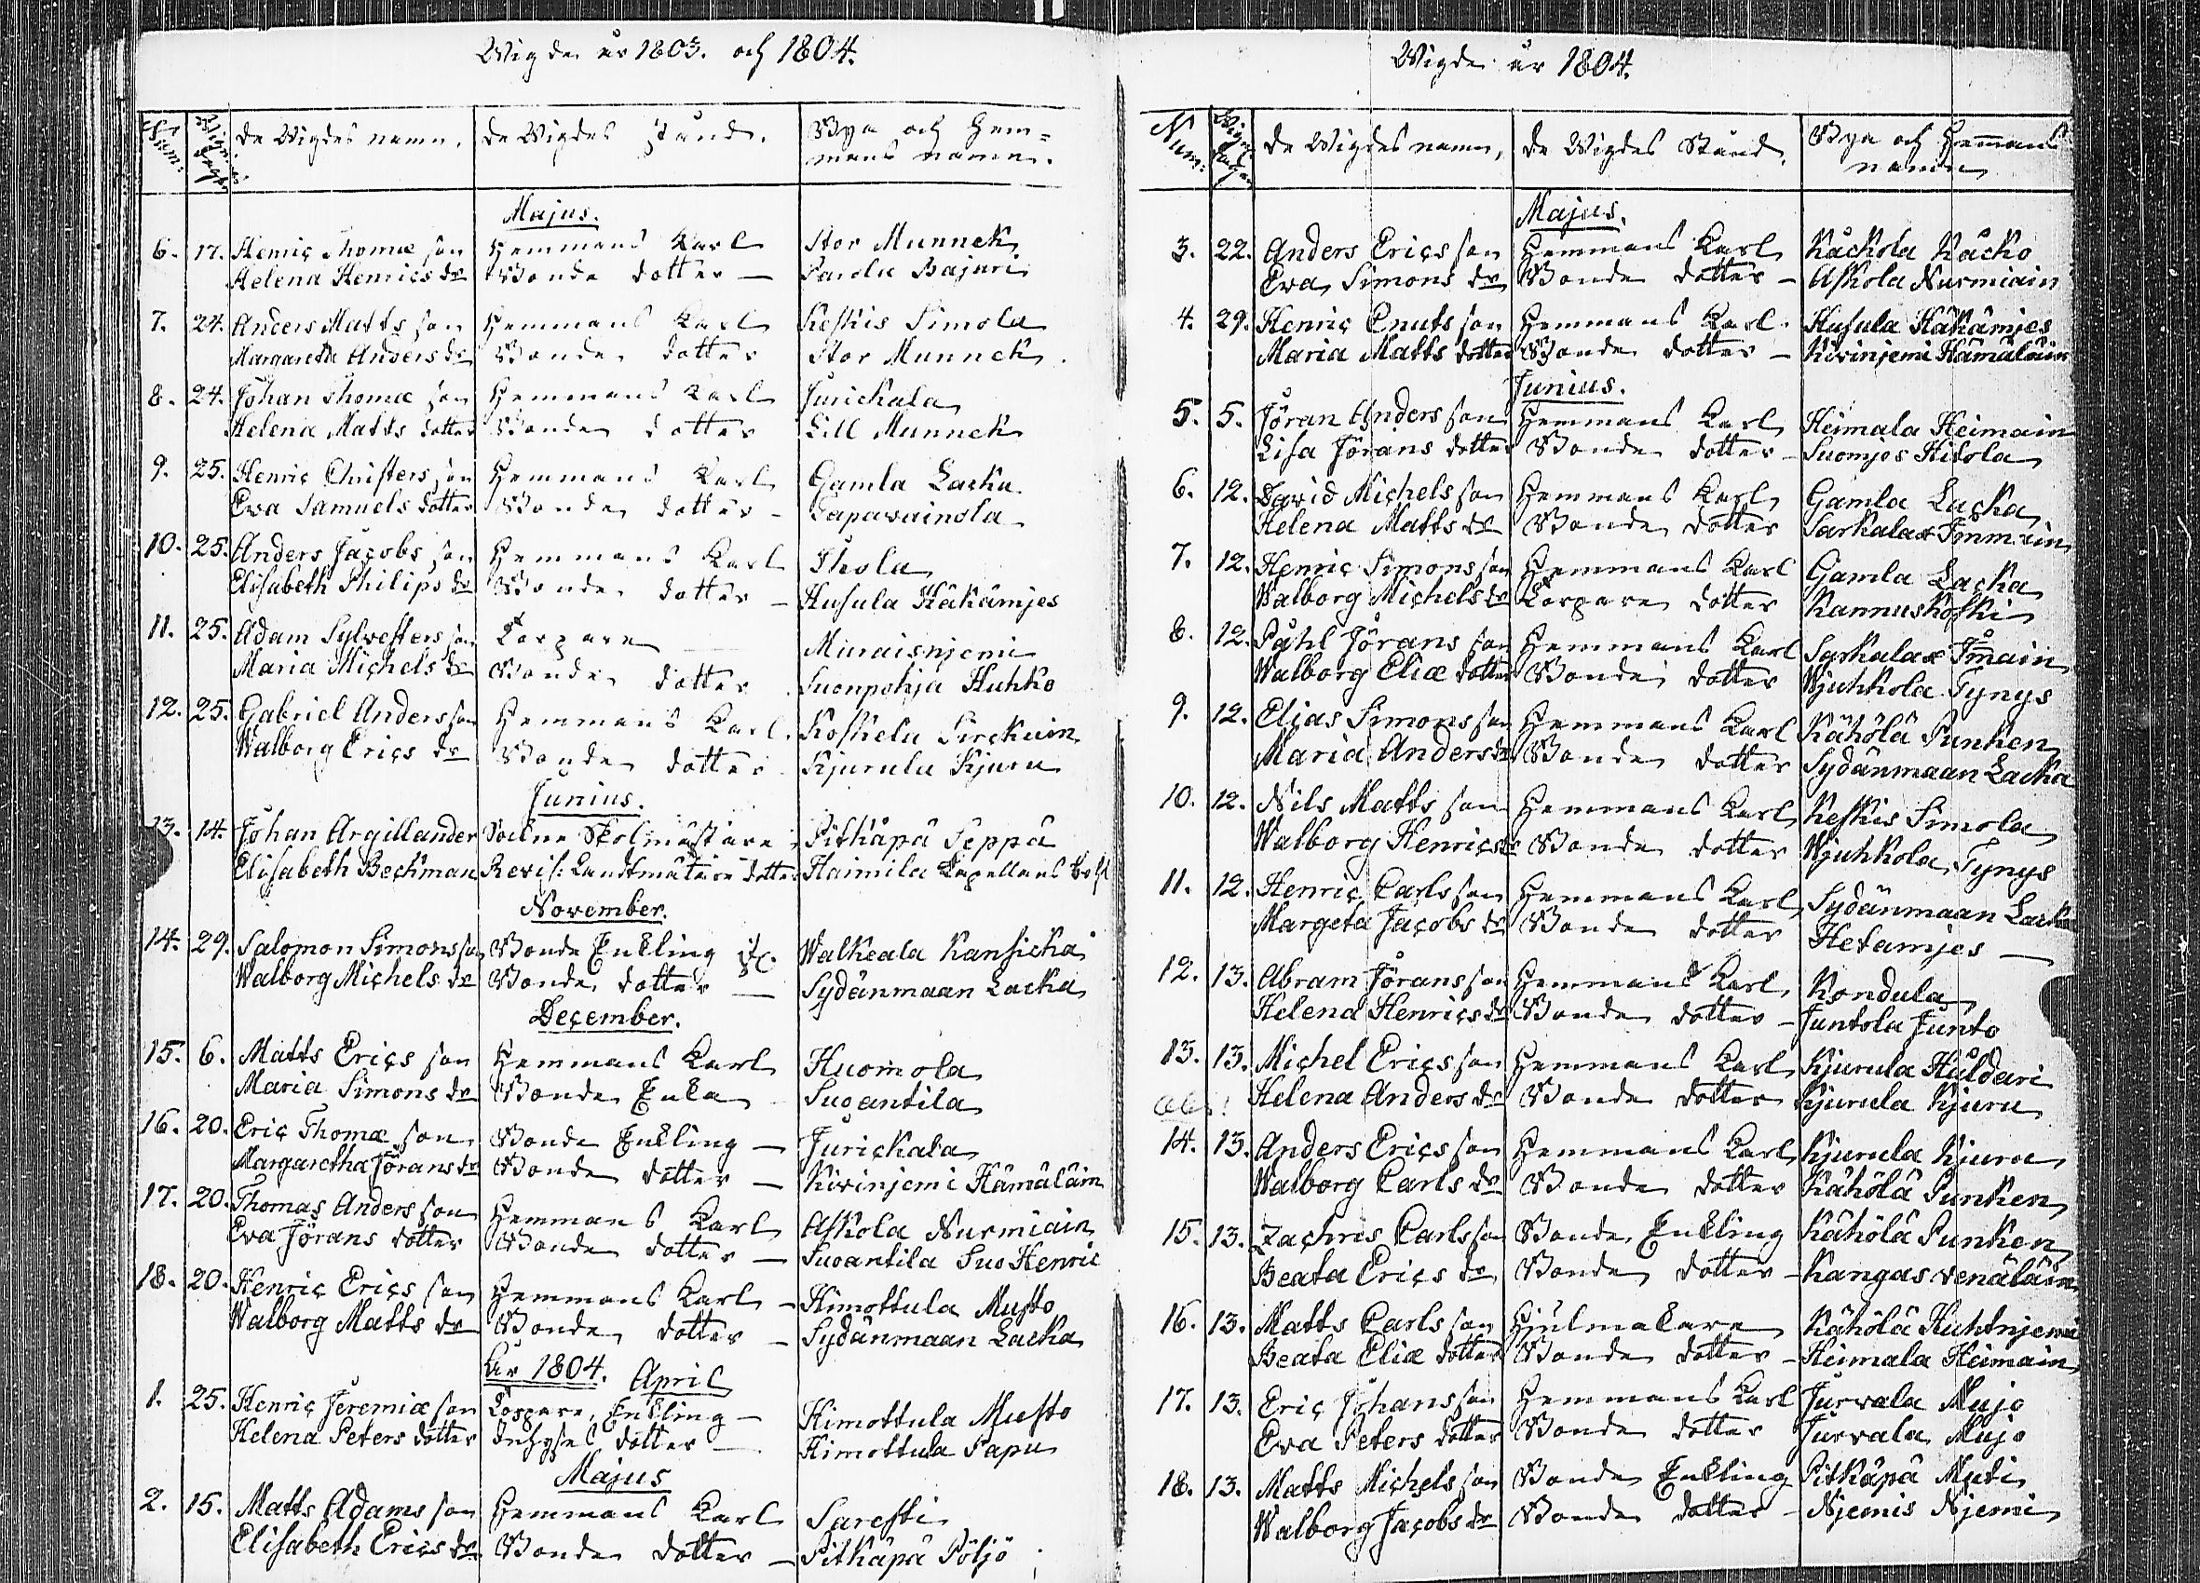 Wigde år 1803. och 1804.
Num: Wignings dagar De Wigdes namn. De Wigdes stånd. Bya och Hem=
mans namn.
Majus.
6. 17. Henric Thomæ son Hemmans Karl Stor Munnek
Helena Henrics dr Bonde dotter — Parola Bajari
7. 24. Anders Matts son Hemmans Karl Keskis Simola
Margareta Anders dr Bonde dotter Stor Munnek
8. 24. Johan Thomæ son Hemmans Karl Jurickala
Helena Matts dotter Bonde dotter Lill Munnek
9. 25. Henric Christers son Hemmans Karl Gamla Lacka
Eva Samuels dotter Bonde dotter – Lapawainola
10. 25. Anders Jacobs son Hemmans Karl Ihola
Elisabeth Philips dr Bonde dotter – Husula Häkämjes
11. 25. Adam Sylvesters son Torpare Muraisnjemi
Maria Michels dr Bonde dotter Suonpohja Huhko
12. 25. Gabriel Anders son Hemmans Karl. Koskela Sirckain
Walborg Erics dr Bonde dotter Kjurula Kjuru
Junius.
13. 14. Johan Argillander Sockne Skolmästare Pitkäpä Seppä
Elisabeth Bechman Revis: Landtmätare dotter Haimila Capellans Bohl
November.
14. 29. Salomon Simons son Bonde Enkling Walkeala Kansicka
Walborg Michels dr Bonde dotter — Sydänmaan Lacka
December.
15. 6. Matts Erics son Hemmans Karl Huomola
Maria Simons dr Bonde Enka Suoantila
16. 20. Eric Thomæ son Bonde Enkling — Jurickala
Margaretha Jörans dr Bonde dotter — Kivinjemi Hämäläin
17. 20. Thomas Anders son Hemmans Karl Askola Nurmiain
Eva Jörans dotter Bonde dotter — Suoantila Suo Henric
18. 20. Henric Erics son Hemmans Karl – Himottula Musto
Walborg Matts dr Bonde dotter – Sydänmaan Lacka
År 1804. April
1. 25. Henric Jeremiæ son Torpare, Enkling – Himottula Musto
Helena Peters dotter Inhyses dotter — Himottula Papu
Majus
2. 15. Matts Adams son Hemmans Karl Saresti
Elisabeth Erics dr Bonde dotter – Pitkäpä Pöljö
Wigde år 1804.
Num: Wign: dagar De Wigdes namn, De Wigdes Stånd. Bya och Hemmans
namn
Majus.
3. 22. Anders Erics son Hemmans Karl Käckola Käcko
Eva Simons dr Bonde dotter – Askola Nurmiain
4. 29. Henric Cnuts son Hemmans Karl. Husula Häkämjes
Maria Matts dotter Bonde dotter – Kivinjemi Hämäläin
Junius.
5. 5. Jöran Anders son Hemmans Karl Heimala Heimain
Lisa Jörans dotter Bonde dotter – Suomjes Hitola
6. 12. David Michels son Hemmans Karl Gamla Lacka
Helena Matts dr Bonde dotter Sarkalax Immain
7. 12. Henric Simons son Hemmans Karl Gamla Lacka
Walborg Michels dr Torpare dotter Kannuskoski
8. 12. Påhl Jörans son Hemmans Karl Sarkalax Immain
Walborg Eliæ dotter Bonde dotter Wjuhkola Tynys
9. 12. Elias Simons son Hemmans Karl Kähölä Punken
Maria Anders dr Bonde dotter Sydänmaan Lacka
10. 12. Nils Matts son Hemmans Karl Keskis Simola
Walborg Henrics dr Bonde dotter Wjuhkola Tynys
11. 12. Henric Carls son Hemmans Karl Sydänmaan Lacka
Margeta Jacobs dr Bonde dotter Hetamjes —
12. 13. Abram Jörans son Hemmans Karl, Kondula
Helena Henrics dr Bonde dotter – Juntola Junto
13. 13. Michel Erics son Hemmans Karl Kjurula Huldari
Helena Anders dr Bonde dotter Kjurula Kjuru
14. 13. Anders Erics son Hemmans Karl Kjurula Kjuru
Walborg Carls dr Bonde dotter Kähölä Punken
15. 13. Zachris Carls son Bonde Enkling Kähölä Punken
Beata Erics dr Bonde dotter – Kangas venäläin
16. 13. Matts Carls son Hjulmakare Kähölä Huhtnjemi
Beata Eliæ dotter Bonde dotter – Heimala Heimain
17. 13. Eric Johans son Hemmans Karl Jurvala Mujo
Eva Peters dotter Bonde dotter Jurvala Mujo
18. 13. Matts Michels son Bonde Enkling Pitkäpä Muti
Walborg Jacobs dr Bonde dotter – Njemis Njemi